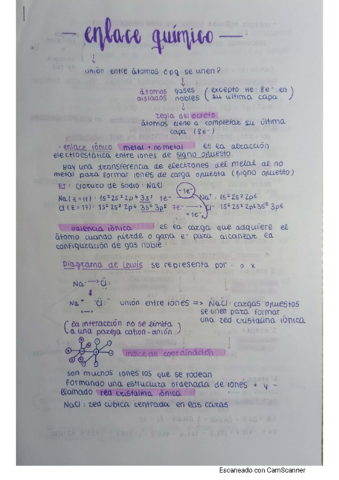 — enlace químico —
unión entre átomos ¿pq se unen?
átomos aislados gases nobles (excepto He: 8e⁻ en su última capa)
regla del octeto
átomos tiene a completar su última
capa (8e⁻)
· enlace iónico metal + no metal es la atracción
electroestática entre iones de signo opuesto.
Hay una transferencia de electrones del metal al no
metal para formar iones de carga opuesta (signo opuesto)
Ej: Cloruro de sodio: NaCl
-1e⁻
Na (z=11): 1s² 2s² 2p⁶ 3s¹ 1e⁻ Na⁺: 1s² 2s² 2p⁶
Cl (z=17): 1s² 2s² 2p⁶ 3s² 3p⁵ 1e⁻ Cl⁻: 1s² 2s² 2p⁶ 3s² 3p⁶
valencia iónica: es la carga que adquiere el
átomo cuando pierde o gana e⁻ para alcanzar la
configuración de gas noble
Diagrama de Lewis se representa por · o x
Na· Cl:
Na⁺ Cl⁻ unión entre iones => NaCl: cargas opuestas
se unen para formar
una red cristalina iónica
(la interacción no se limita
a una pareja catión-anión)
índice de coordinación
son muchos iones los que se rodean
formando una estructura ordenada de iones + y -
llamado red cristalina iónica
NaCl: red cúbica centrada en las caras
Escaneado con CamScanner